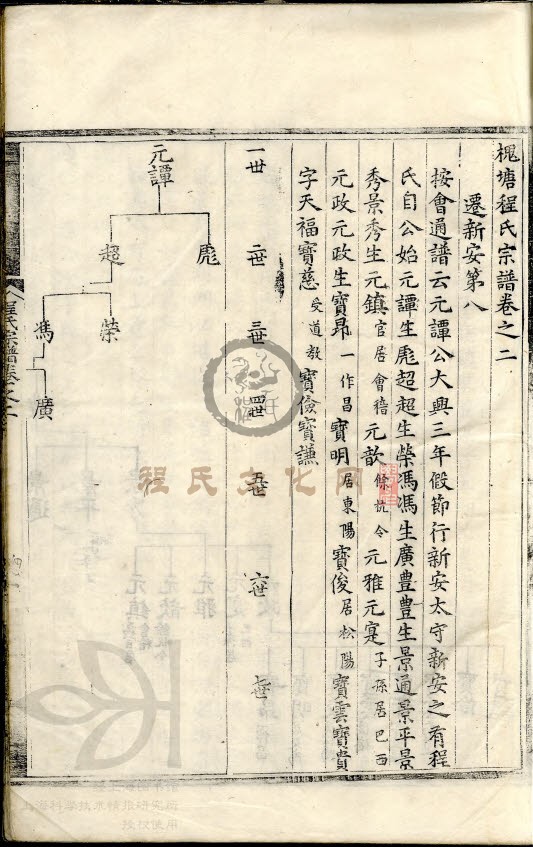 槐塘程氏宗譜卷之二
遷新安第八
按會通譜云元譚公大興三年假節行新安太守新安之有程
氏自公始元譚生彪超超生榮馮馮生廣豊豊生景通景平景
秀景秀生元鎮官居會稽元歆餘杭令元雅元寔子孫居巴西
元政元政生寶昂一作昌寶明居東陽寶俊居松陽寶雲寶貴
字天福寶慈受道教寶儉寶謙
一世
二世
三世
四世
五世
六世
七世
元譚
彪
超
榮
馮
廣
程氏宗譜卷之二
程氏文化网
上海科学技术情报研究所
授权使用